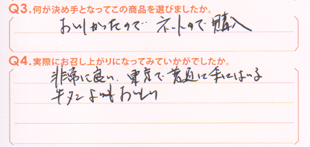 Q3.何が決め手となってこの商品を選びましたか。
おいしかったので ネットので購入
Q4.実際にお召し上がりになってみていかがでしたか。
非常に良い、東京で普通に手にはいる
牛タンよりもおいしい